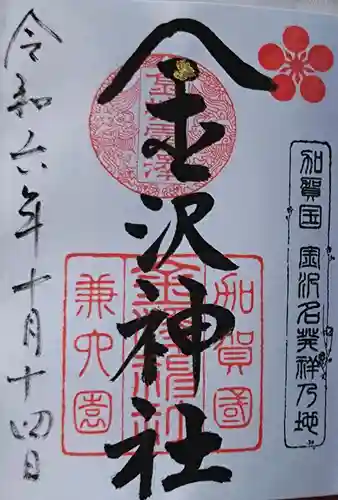 加賀国 金沢名発祥乃地
金沢神社
加賀國
金澤神社
兼六園
令和六年十月十四日